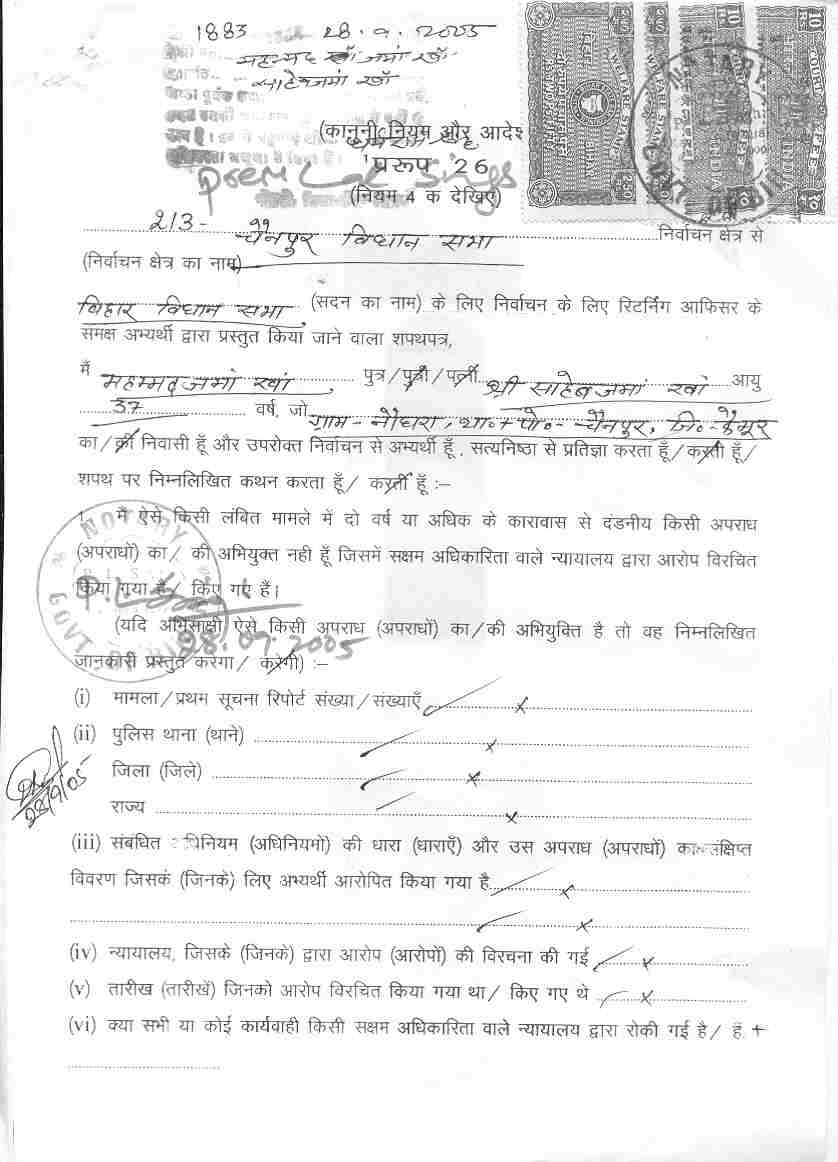 1883 28.9.2005
महम्मद खाँ जमां खाँ
साहेबजमां खाँ
(कानूनी नियम और आदेश
प्ररूप 26
(नियम 4 क देखिए)
213- चैनपुर विधान सभा निर्वाचन क्षेत्र से
(निर्वाचन क्षेत्र का नाम)
बिहार विधान सभा (सदन का नाम) के लिए निर्वाचन के लिए रिटर्निंग आफिसर के
समक्ष अभ्यर्थी द्वारा प्रस्तुत किया जाने वाला शपथपत्र,
मैं महम्मद जमां खां पुत्र/पुत्री/पत्नी श्री साहेबजमां खां आयु
37 वर्ष, जो ग्राम- नौघरा, था॰+पो॰- चैनपुर, जि॰- कैमूर
का/की निवासी हूँ और उपरोक्त निर्वाचन से अभ्यर्थी हूँ, सत्यनिष्ठा से प्रतिज्ञा करता हूँ/करती हूँ/
शपथ पर निम्नलिखित कथन करता हूँ/ करती हूँ :–
1. मैं ऐसे किसी लंबित मामले में दो वर्ष या अधिक के कारावास से दंडनीय किसी अपराध
(अपराधों) का/ की अभियुक्त नही हूँ जिसमें सक्षम अधिकारिता वाले न्यायालय द्वारा आरोप विरचित
किया गया है/ किए गए हैं।
(यदि अभिसाक्षी ऐसे किसी अपराध (अपराधों) का/की अभियुक्ति है तो वह निम्नलिखित
28.09.2005
जानकारी प्रस्तुत करेगा/ करेगी) :–
(i) मामला/प्रथम सूचना रिपोर्ट संख्या/संख्याएँ x
(ii) पुलिस थाना (थाने) x
जिला (जिले) x
राज्य x
28/9/05
(iii) संबंधित अधिनियम (अधिनियमों) की धारा (धाराएँ) और उस अपराध (अपराधों) का संक्षिप्त
विवरण जिसके (जिनके) लिए अभ्यर्थी आरोपित किया गया है x
x
(iv) न्यायालय, जिसके (जिनके) द्वारा आरोप (आरोपों) की विरचना की गई x
(v) तारीख (तारीखें) जिनको आरोप विरचित किया गया था/ किए गए थे x
(vi) क्या सभी या कोई कार्यवाही किसी सक्षम अधिकारिता वाले न्यायालय द्वारा रोकी गई है/ हैं. +